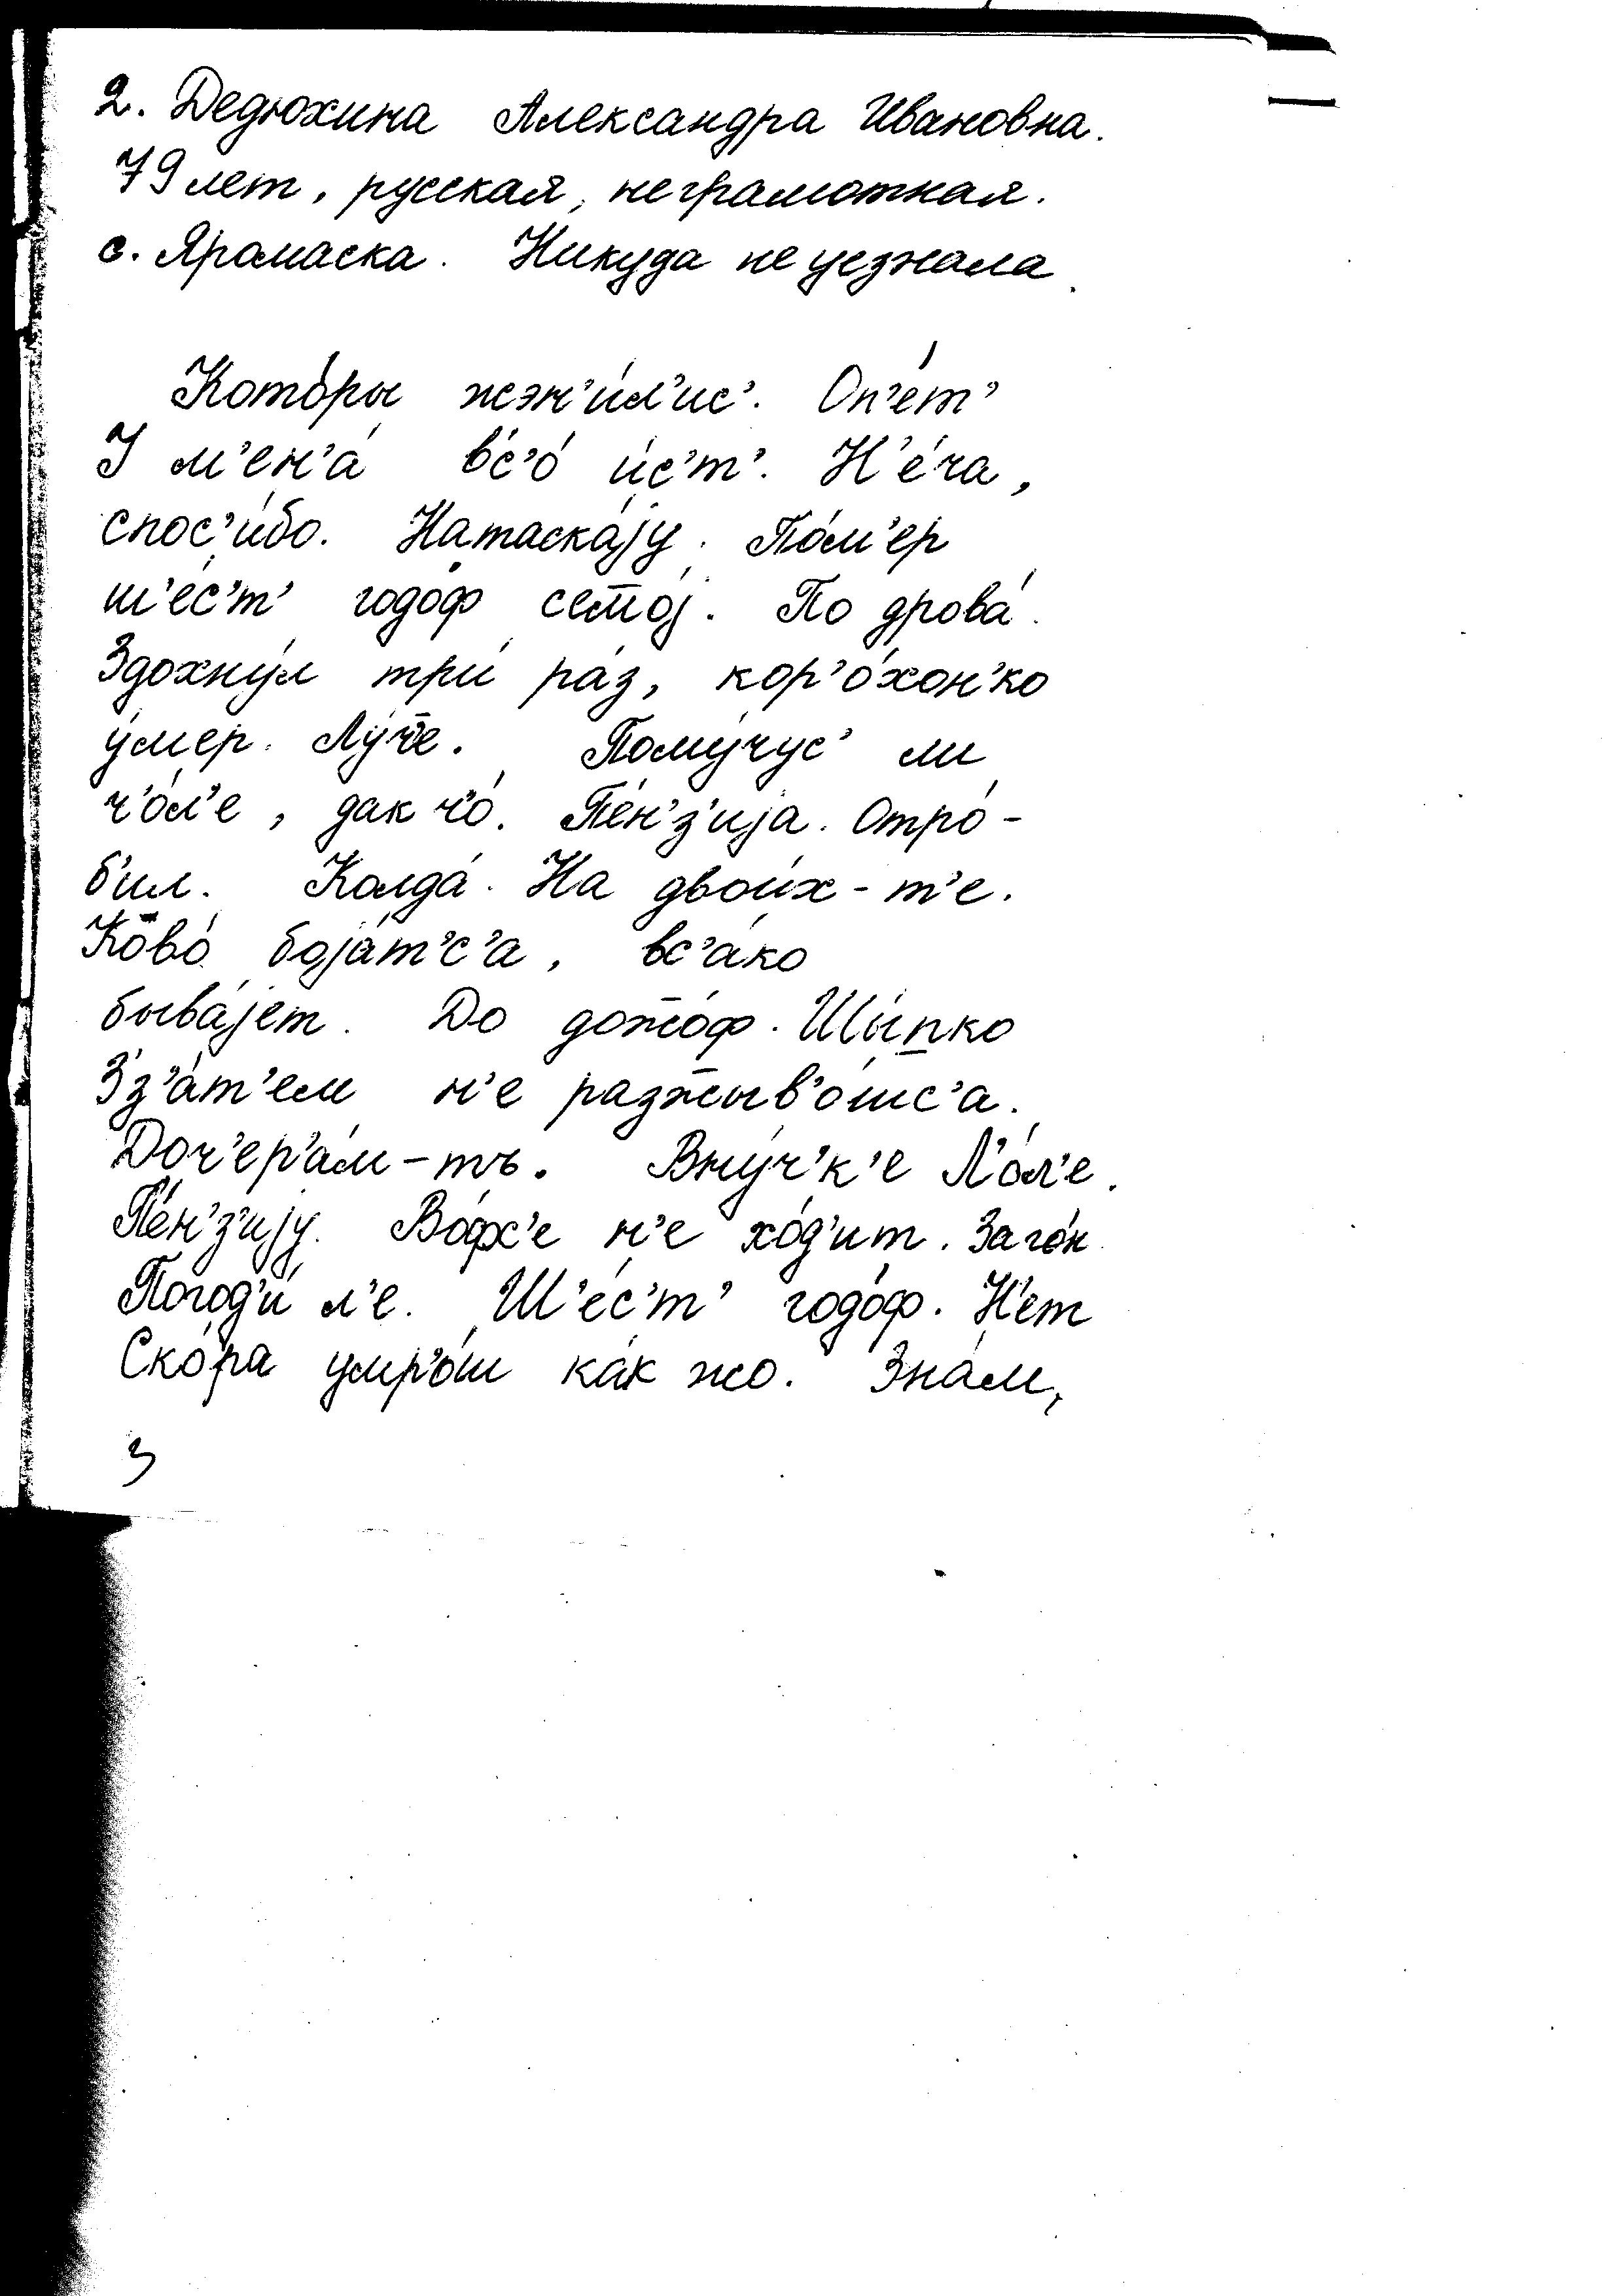 2. Дедюхина Александра Ивановна.
79 лет, русская, неграмотная.
с. Яромаска. Никуда не уезжала.
Кото́ры жэн'и́л'ис'. Оп'е́т'
У м'ен'а́ вс'о́ и́с'т'. Н'е́ча,
спос'и́бо. Натаска́jу. По́м'ер
ш'е́с'т' годо́ф семо́j. По дрова́.
Здохну́л три́ ра́з, кор'о́хон'ко
у́мер. Лу́ч̄е. Пому́чус' ли
ч'о́л'е, дак ч'о́. Пе́н'з'иjа. Отро́-
б'ил. Колда́. На двои́х-т'е.
Ково́ боjа́т'с'а, вс'а́ко
быва́jет. До дож̄о́ф. Шы́пко
Зз'а́т'ем н'е разжыв'о́шс'а.
Доч'ер'а́м-тъ. Вну́ч'к'е Л'о́л'е.
Пе́н'з'иjу. Во́фс'е н'е хо́д'ит. Заго́н
Погод'и́ л'е. Ш'е́с'т' годо́ф. Н'ет
Ско́ра умр'о́ш ка́к жо. Зна́м,
3